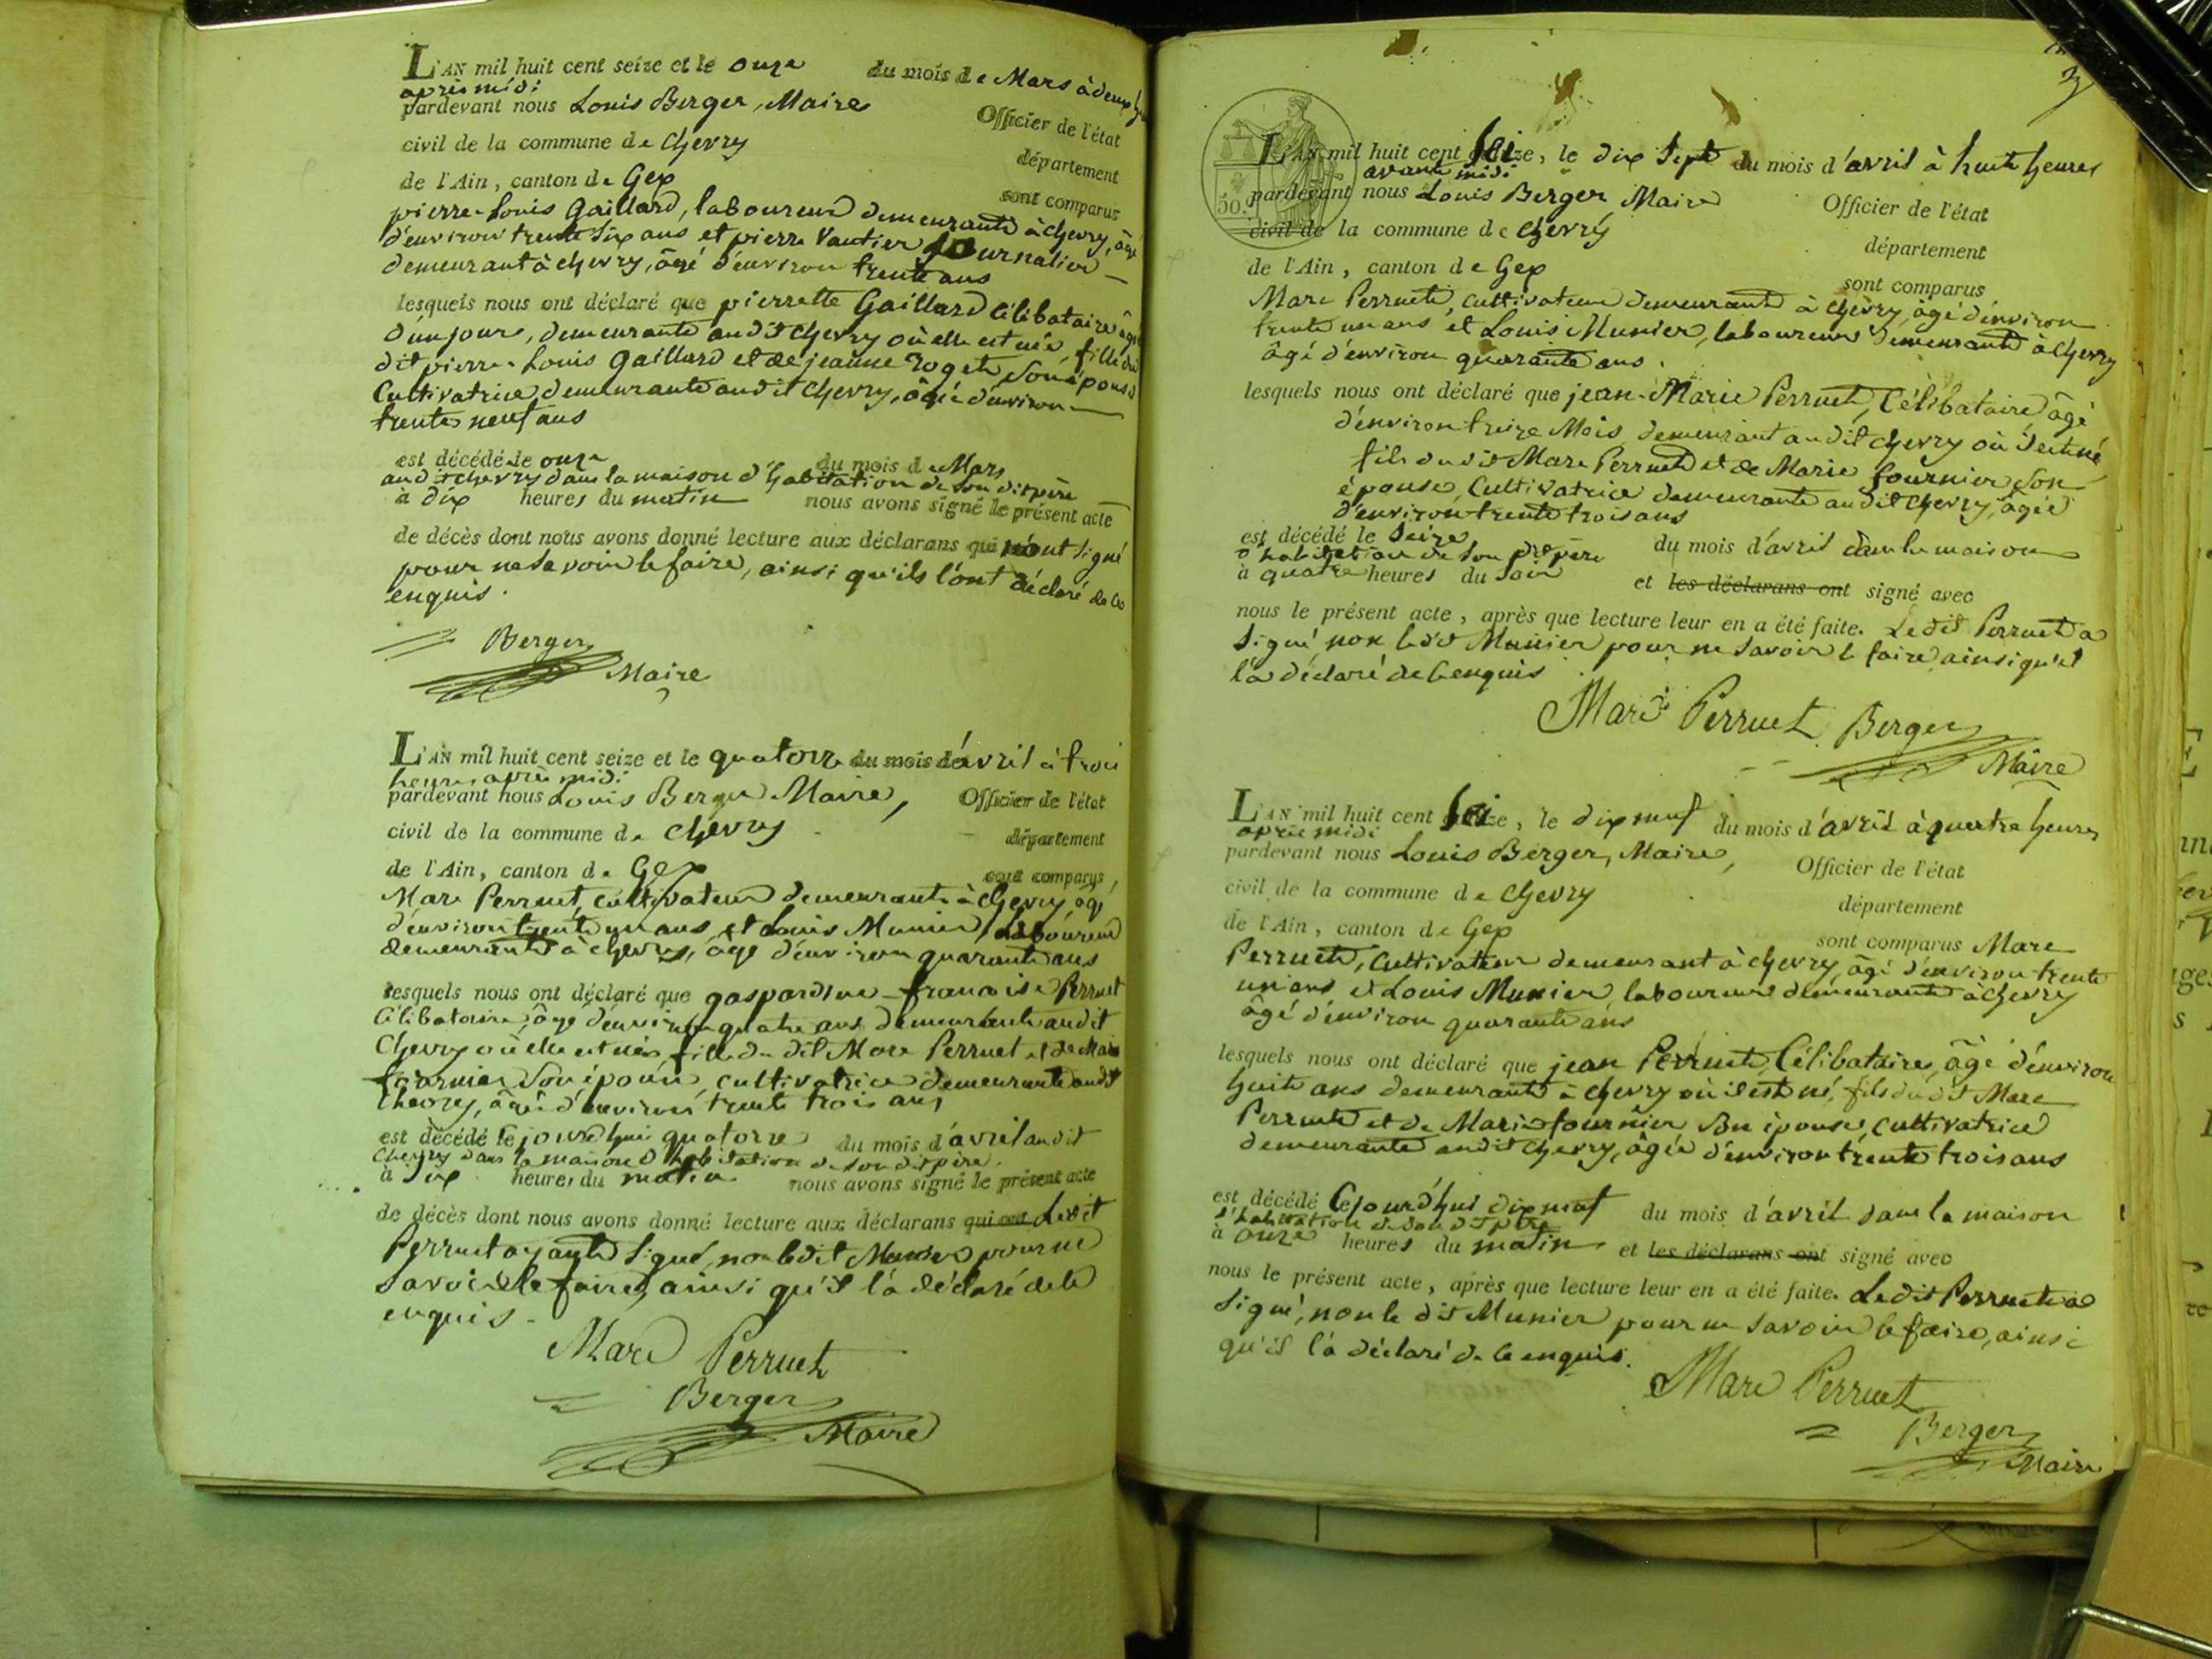 L'AN mil huit cent seize et le onze du mois de Mars à deux
après midi
pardevant nous Louis Berger, Maire Officier de l'état
civil de la commune de Chevry département
de l'Ain, canton de Gex sont comparus
pierre-Louis Gaillard, laboureur demeurant à chevry, âgé
d'environ trente six ans et pierre Vautier journalier
demeurant à chevry, âgé d'environ trente ans
lesquels nous ont déclaré que pierrette Gaillard Célibataire âgée
d'un jour, demeurante au dit chevry où elle est née, fille du
dit pierre-Louis Gaillard et de jeanne Roget son épouse
Cultivatrice demeurante au dit chevry, âgée d'environ
trente neuf ans
est décédé le onze du mois de Mars
au dit chevry dans la maison d'habitation de son dit père
à dix heures du matin nous avons signé le présent acte
de décès dont nous avons donné lecture aux déclarans qui n'ont signé
pour ne savoir le faire, ainsi qu'ils l'ont déclaré de ce
enquis.
Berger
Maire
L'AN mil huit cent seize et le quatorze du mois d'avril à trois
heures après midi
pardevant nous Louis Berger Maire, Officier de l'état
civil de la commune de chevry département
de l'Ain, canton de Gex sont comparus,
Marc Perruet, cultivateur demeurant à chevry âgé
d'environ trente un ans, et Louis Munier, laboureur
demeurant à chevry, âgé d'environ quarante ans
lesquels nous ont déclaré que gaspardine-francoise Perruet
Célibataire, âgé d'environ quatre ans demeurante au dit
Chevry où elle est née fille du dit Marc Perruet et de Marie
fournier son épouse, cultivatrice demeurante au dit
Chevry, âgée d'environ trente trois ans
est décédé ce jourd'hui quatorze du mois d'avril au dit
chevry dans la maison d'habitation de son dit père.
à six heures du matin nous avons signé le présent acte
de décès dont nous avons donné lecture aux déclarans qui ont Ledit
Perruet ayant signé, non ledit Munier pour ne
savoir le faire, ainsi qu'il l'a déclaré de ce
enquis.
Marc Perruet
Berger
Maire
3
50.
L'AN mil huit cent seize, le dix sept du mois d'avril à huit heures
avant midi
pardevant nous Louis Berger Maire Officier de l'état
civil de la commune de chevry département
de l'Ain, canton de Gex sont comparus
Marc Perruet, Cultivateur demeurant à chevry, âgé d'environ
trente un ans et Louis Munier, laboureur demeurant à chevry
âgé d'environ quarante ans.
lesquels nous ont déclaré que jean-Marie Perruet, Célibataire, âgé
d'environ treize Mois demeurant au dit chevry où il est né
fils du dit Marc Perruet et de Marie fournier son
épouse, Cultivatrice demeurante au dit chevry, âgée
d'environ trente trois ans
est décédé le seize du mois d'avril dans la maison
d'habitation de son dit père
à quatre heures du soir et les déclarans ont signé avec
nous le présent acte, après que lecture leur en a été faite. Ledit Perruet a
signé non ledit Munier pour ne savoir le faire ainsi qu'il
l'a déclaré de ce enquis
Marc Perruet Berger
Maire
L'AN mil huit cent seize, le dix neuf du mois d'avril à quatre heures
après midi
pardevant nous Louis Berger, Maire, Officier de l'état
civil de la commune de chevry département
de l'Ain, canton de Gex sont comparus Marc
Perruet, Cultivateur demeurant à chevry, âgé d'environ trente
un ans et Louis Munier, laboureur demeurant à chevry
âgé d'environ quarante ans
lesquels nous ont déclaré que jean Perruet, Célibataire, âgé d'environ
huit ans demeurant à chevry où il est né, fils du dit Marc
Perruet et de Marie fournier son épouse, cultivatrice
demeurante au dit chevry, âgée d'environ trente trois ans
est décédé Cejourd'hui dix neuf du mois d'avril dans la maison
d'habitation de son dit père
à onze heures du matin et les déclarans ont signé avec
nous le présent acte, après que lecture leur en a été faite. Ledit Perruet a
signé, non le dit Munier pour ne savoir le faire, ainsi
qu'il l'a déclaré de ce enquis.
Marc Perruet
Berger
Maire